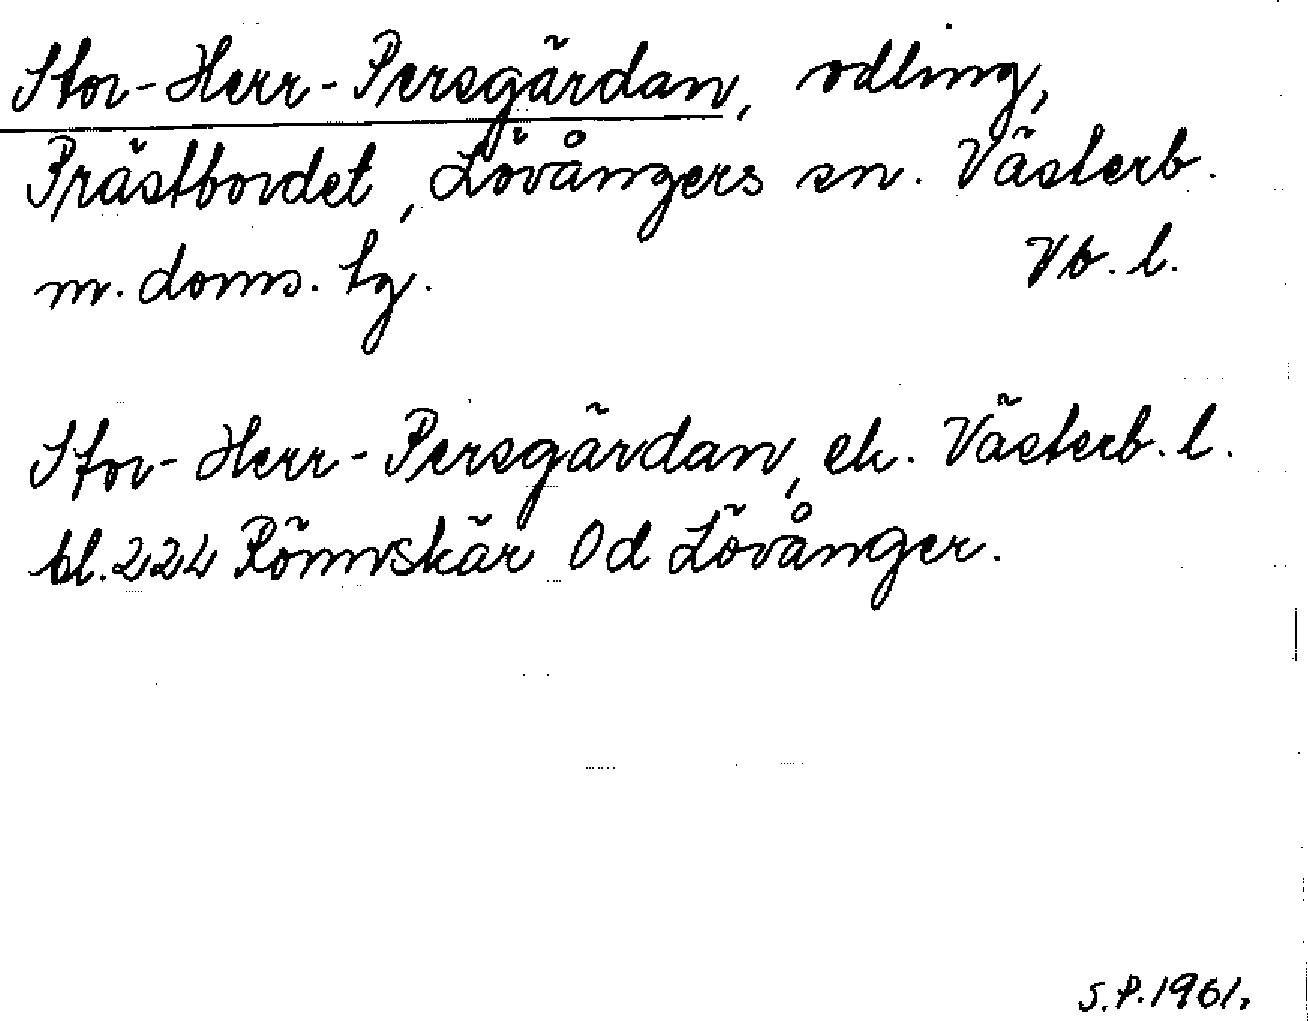 Stor-Herr-Persgärdan, odling,
Prästbordet, Lövångers sn. Västerb.
m. doms. tg. Vb. l.
Stor-Herr-Persgärdan, ek. Västerb. l.
bl. 224 Rönnskär Od Lövånger.
S.P. 1961.